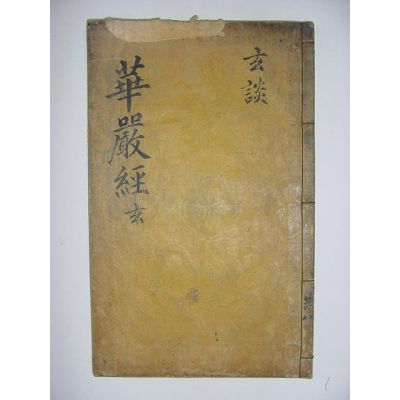 玄談
華嚴經玄